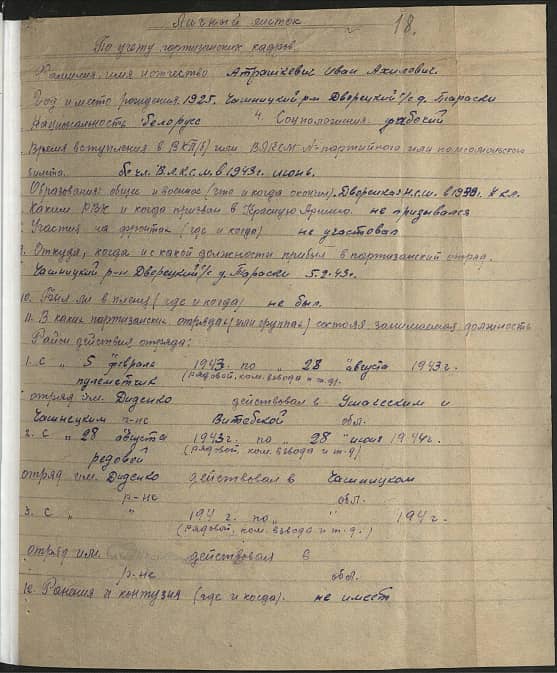 Личный листок 18.
По учету партизанских кадров.
Фамилия, имя и отчество Атрашкевич Иван Ахилович.
Год и место рождения 1925. Чашницкий р-н Дворецкий с/с д. Тараски
Национальность белорус 4. рабочий
Время вступления в ВКП(б) или ВЛКСМ N-партийного или комсомольского
билета. б. чл. В.Л.К.С.М. в 1943г. июнь.
Образования: общее и военное (что и когда окончил). Дворецкая н.с.ш. в 1939. 7 кл.
Каким РВК и когда призван в Красную Армию. не призывался
Участия на фронтах (где и когда) не участвовал
9. Откуда, когда и с какой должности прибыл в партизанский отряд.
Чашницкий р-н Дворецкий с/с д. Тараски 5.2.43г.
10. Был ли в плену (где и когда) не был.
11. В каких партизанских отрядах (или группах) состоял. занимаемая должность
Район действия отряда:
1. с „ 5 " февраля 1943. по „ 28 " августа 1943г.
пулеметчик (рядовой, ком. взвода и т.д).
отряд им. Диденко действовал в Ушачском и
Чашницком р-не Витебской обл.
2. с „ 28 " августа 1943г. по „ 28 " июня 1944г.
редовой (рядовой, ком. взвода и т.д)
отряд им. Диденко действовал в Чашницком
р-не обл.
3. с „ " 194 г. по „ " 194 г.
(рядовой, ком. взвода и т.д.)
отряд им. действовал в
р-не обл.
12. Ранения и контузия (где и когда). не имеет